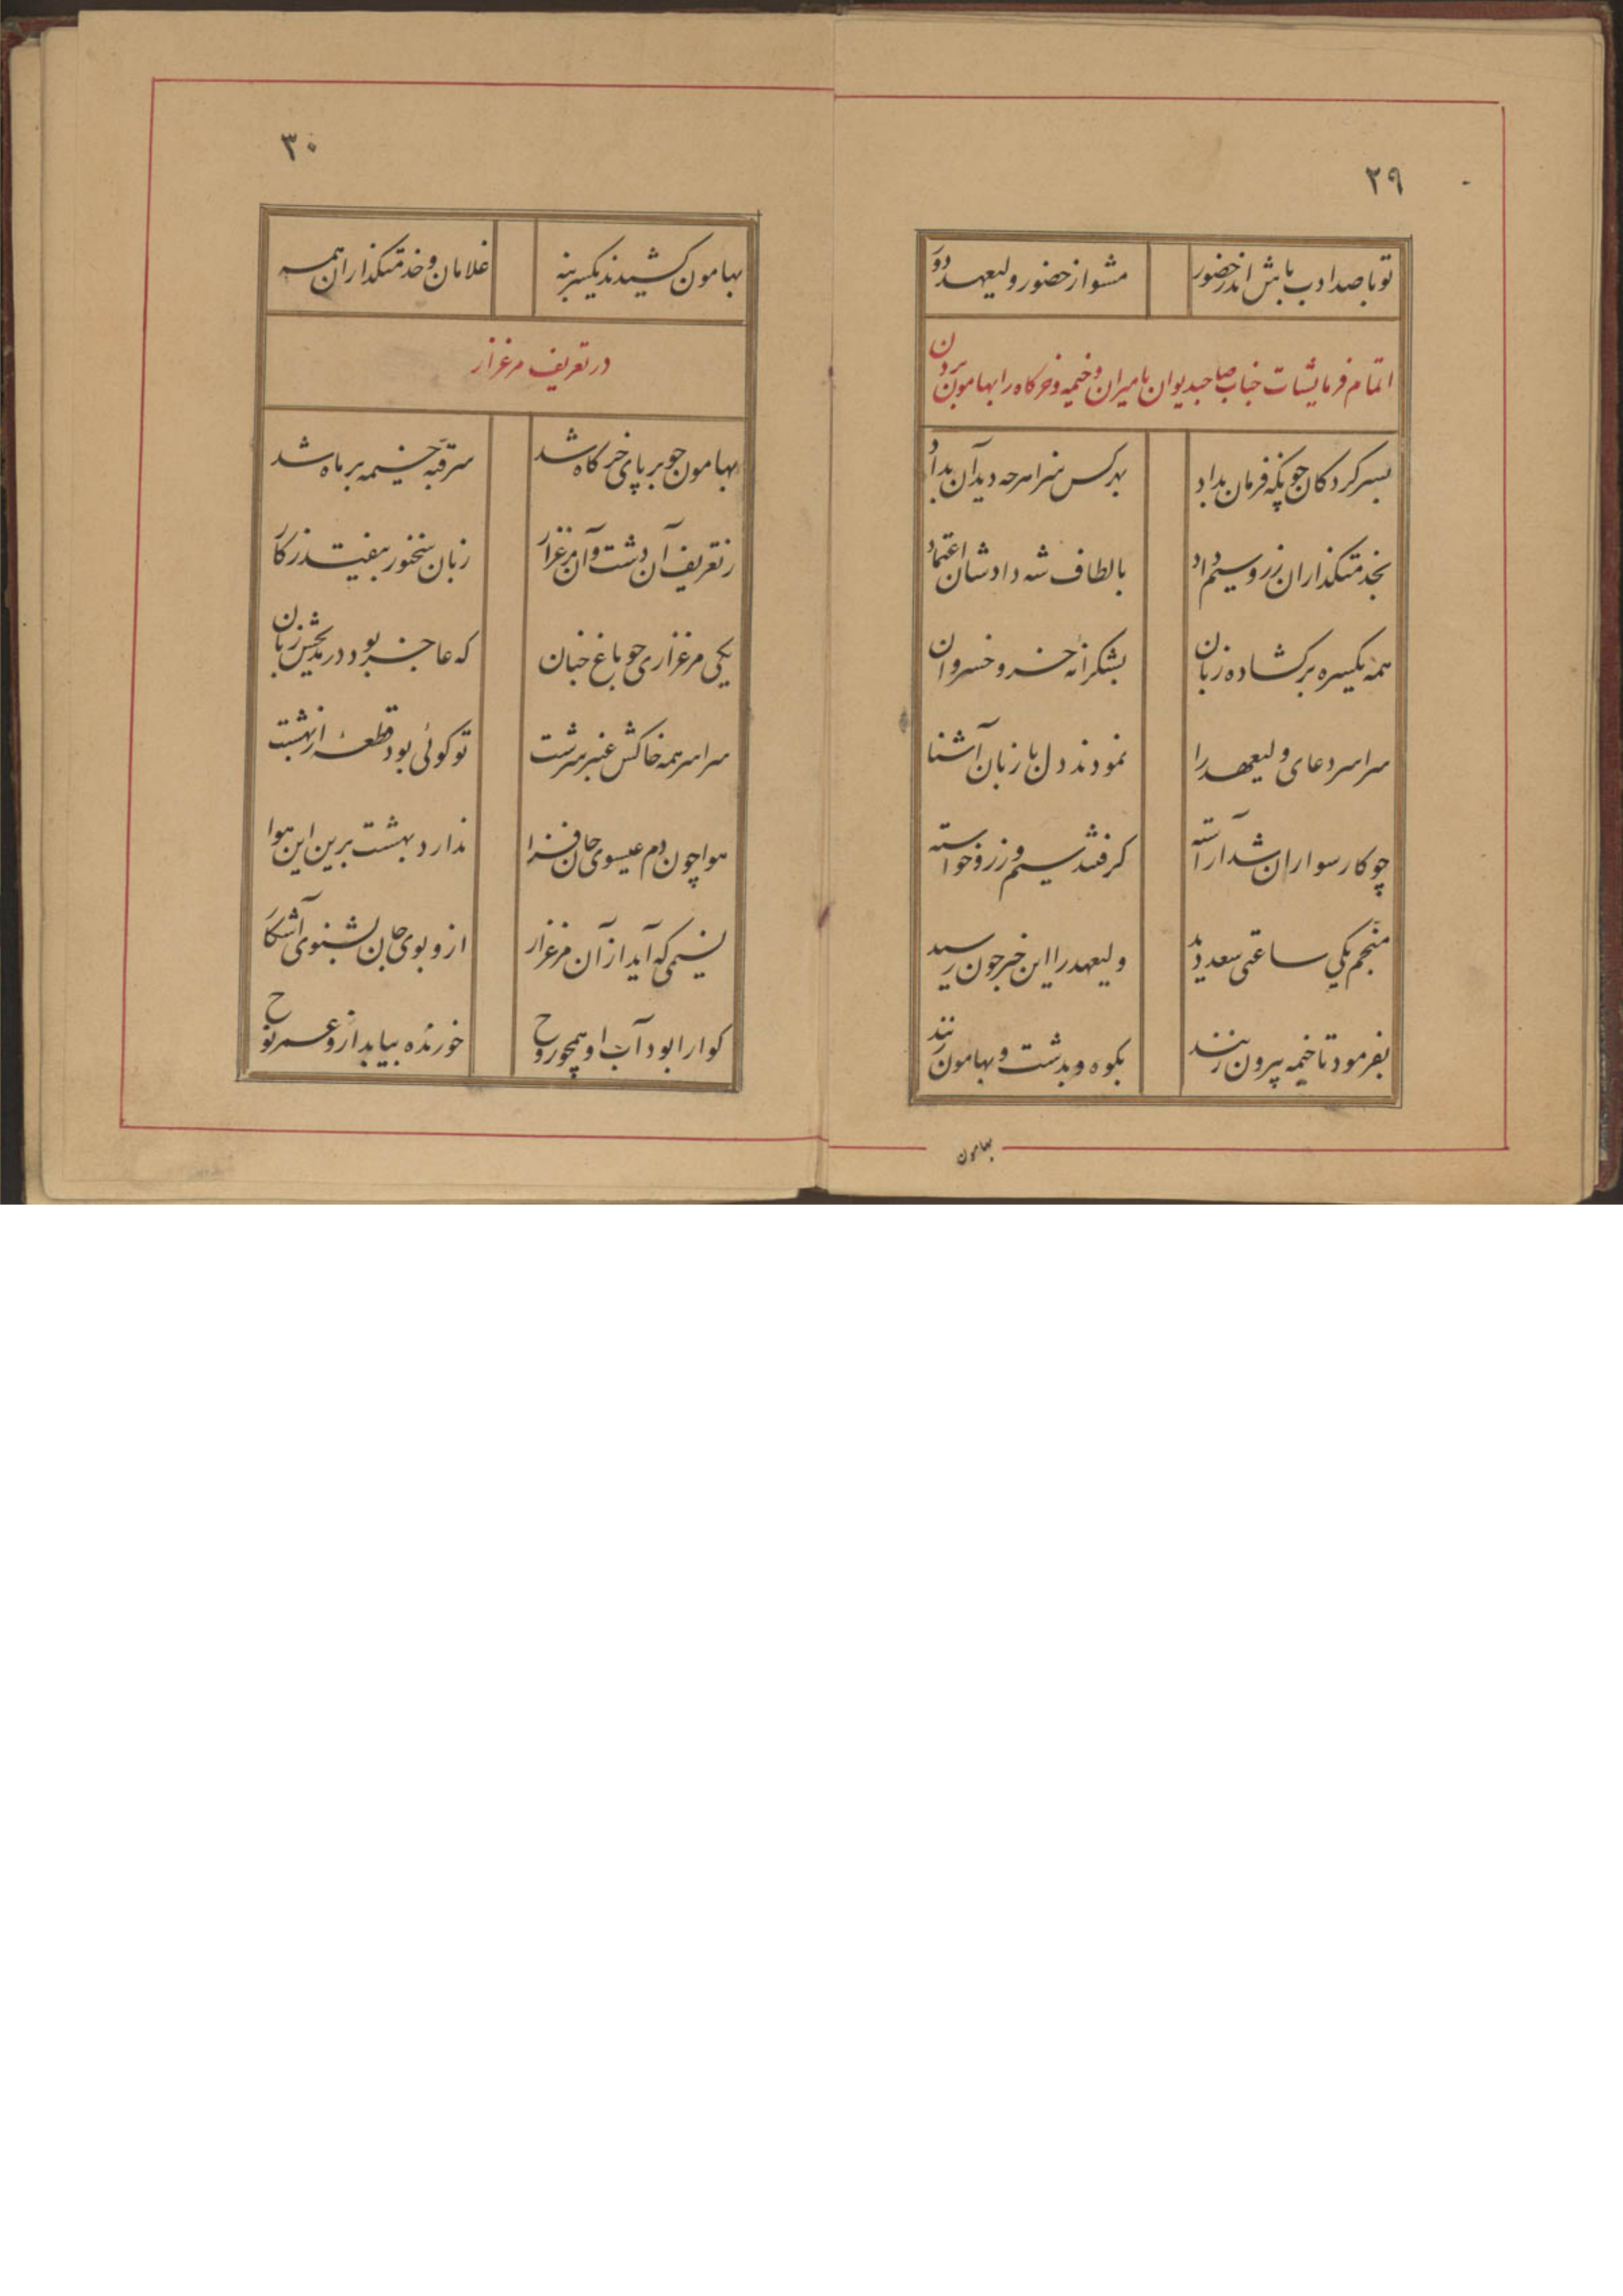 ۲۹
تو با صد ادب باش اندر حضور مشو از حضور ولیعهد دور
اتمام فرمایشات جناب صاحبدیوان بامیران و خیمه و خرکاه را بهامون بردن
بسرکردکان چونکه فرمان بداد بهرکس سزا هرچه دید آن بداد
بخدمتکذاران زر و سیم داد بالطاف شه دادشان اعتماد
همه یکسره برکشاده زبان بشکرانه خسرو خسروان
سراسر دعای ولیعهد را نمودند دل با زبان آشنا
چو کار سواران شد آراسته کرفتند سیم و زر و خواسته
منجم یکی ساعتی سعد دید ولیعهد را این خبر چون رسید
بفرمود تا خیمه بیرون زنند بکوه و بدشت و بهامون زنند
بهامون
۳۰
بهامون کشیدند یکسر بنه غلامان و خدمتکذاران همه
در تعریف مرغزار
بهامون چو برپای خرکاه شد سر قبه خیمه بر ماه شد
ز تعریف آن دشت و آن مرغزار زبان سخنور بیفتد ز کار
یکی مرغزاری چو باغ جنان که عاجز بود در مدیحش زبان
سراسر همه خاکش عنبر سرشت تو کوئی بود قطعهٔ از بهشت
هوا چون دم عیسوی جان فزا ندارد بهشت برین این هوا
نسیمی که آید از آن مرغزار ازو بوی جان بشنوی آشکار
کوارا بود آب او همچو روح خورنده بیابد ازو عمر نوح